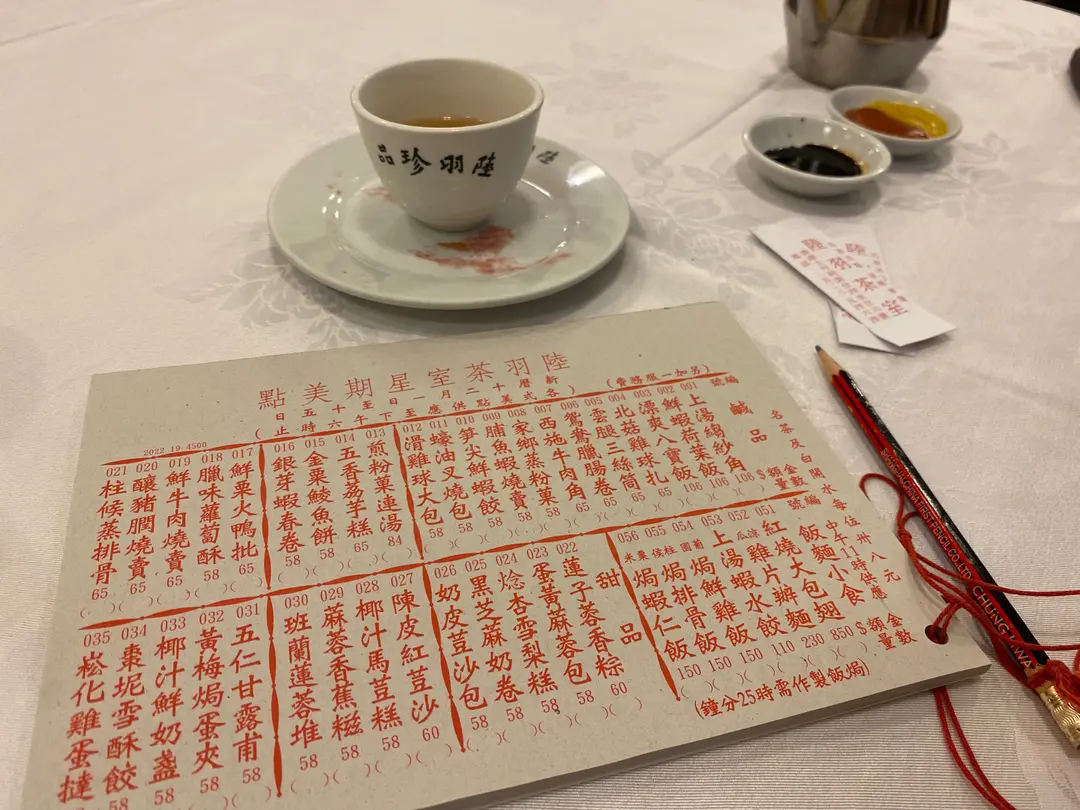 陸羽珍品
陸羽茶室
陸羽茶室星期美點
新曆十二月一日至十五日
各式美點供應
下午六時止
(另加一服務費)
2022 19-4500
名茶及白開水每位卅八元
中午11時供應
編號
鹹品
$金額數量
001 上湯綿紗角 106
002 鮮蝦荷葉飯 106
003 漂爽八寶飯 106
004 北菇雞球扎 65
005 雲腿三絲筒 65
006 鴛鴦臘腸卷 65
007 西施牛肉角 65
008 家鄉蒸粉菓 58
009 脯魚蝦燒賣 58
010 筍尖鮮蝦餃 58
011 蠔油叉燒包 58
012 滑雞球大包 58
013 煎粉菓連湯 84
014 五香荔芋糕 65
015 金粟鯪魚餅 58
016 銀芽蝦春卷 58
017 鮮栗火鴨批 58
018 臘味蘿蔔酥 58
019 鮮牛肉燒賣 58
020 釀豬膶燒賣 65
021 柱候蒸排骨 65
編號
飯麵小食
$金額數
051 紅燒大包翅 850
052 230
053 上湯鮮蝦水餃 110
054 葡國焗雞飯 150
055 柱侯焗排骨飯 150
056 粟米焗蝦仁飯 150
(焗飯製作需時25分鐘)
甜品
022 蓮子蓉香粽 60
023 蛋黃麻蓉包 58
024 焾杏雪梨糕 58
025 黑芝麻奶卷 58
026 奶皮荳沙包 58
027 陳皮紅荳沙 60
028 椰汁馬荳糕 58
029 麻蓉香蕉糍 58
030 班蘭蓮蓉堆 58
031 五仁甘露甫 58
032 黃梅焗蛋夾 58
033 椰汁鮮奶盞 58
034 棗坭雪酥餃 58
035 崧化雞蛋撻 58
PENCIL CO.,LTD.
CHUNG HWA